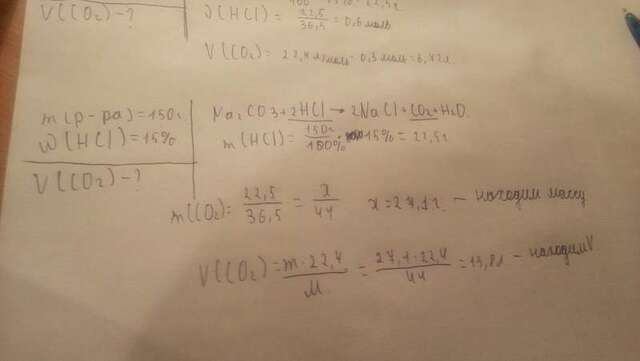 V(CO₂) - ?
υ(HCl) = 22,5 / 36,5 = 0,6 моль
V(CO₂) = 22,4 л/моль · 0,3 моль = 6,72 л.
m(р-ра) = 150 г
ω(HCl) = 15%
V(CO₂) - ?
Na₂CO₃ + 2HCl → 2NaCl + CO₂ + H₂O.
m(HCl) = 150г / 100% · 15% = 22,5 г
m(CO₂) = 22,5 / 36,5 = x / 44 x = 27,1 г. - находим массу
V(CO₂) = m · 22,4 / M = 27,1 · 22,4 / 44 = 13,8 л - находим V